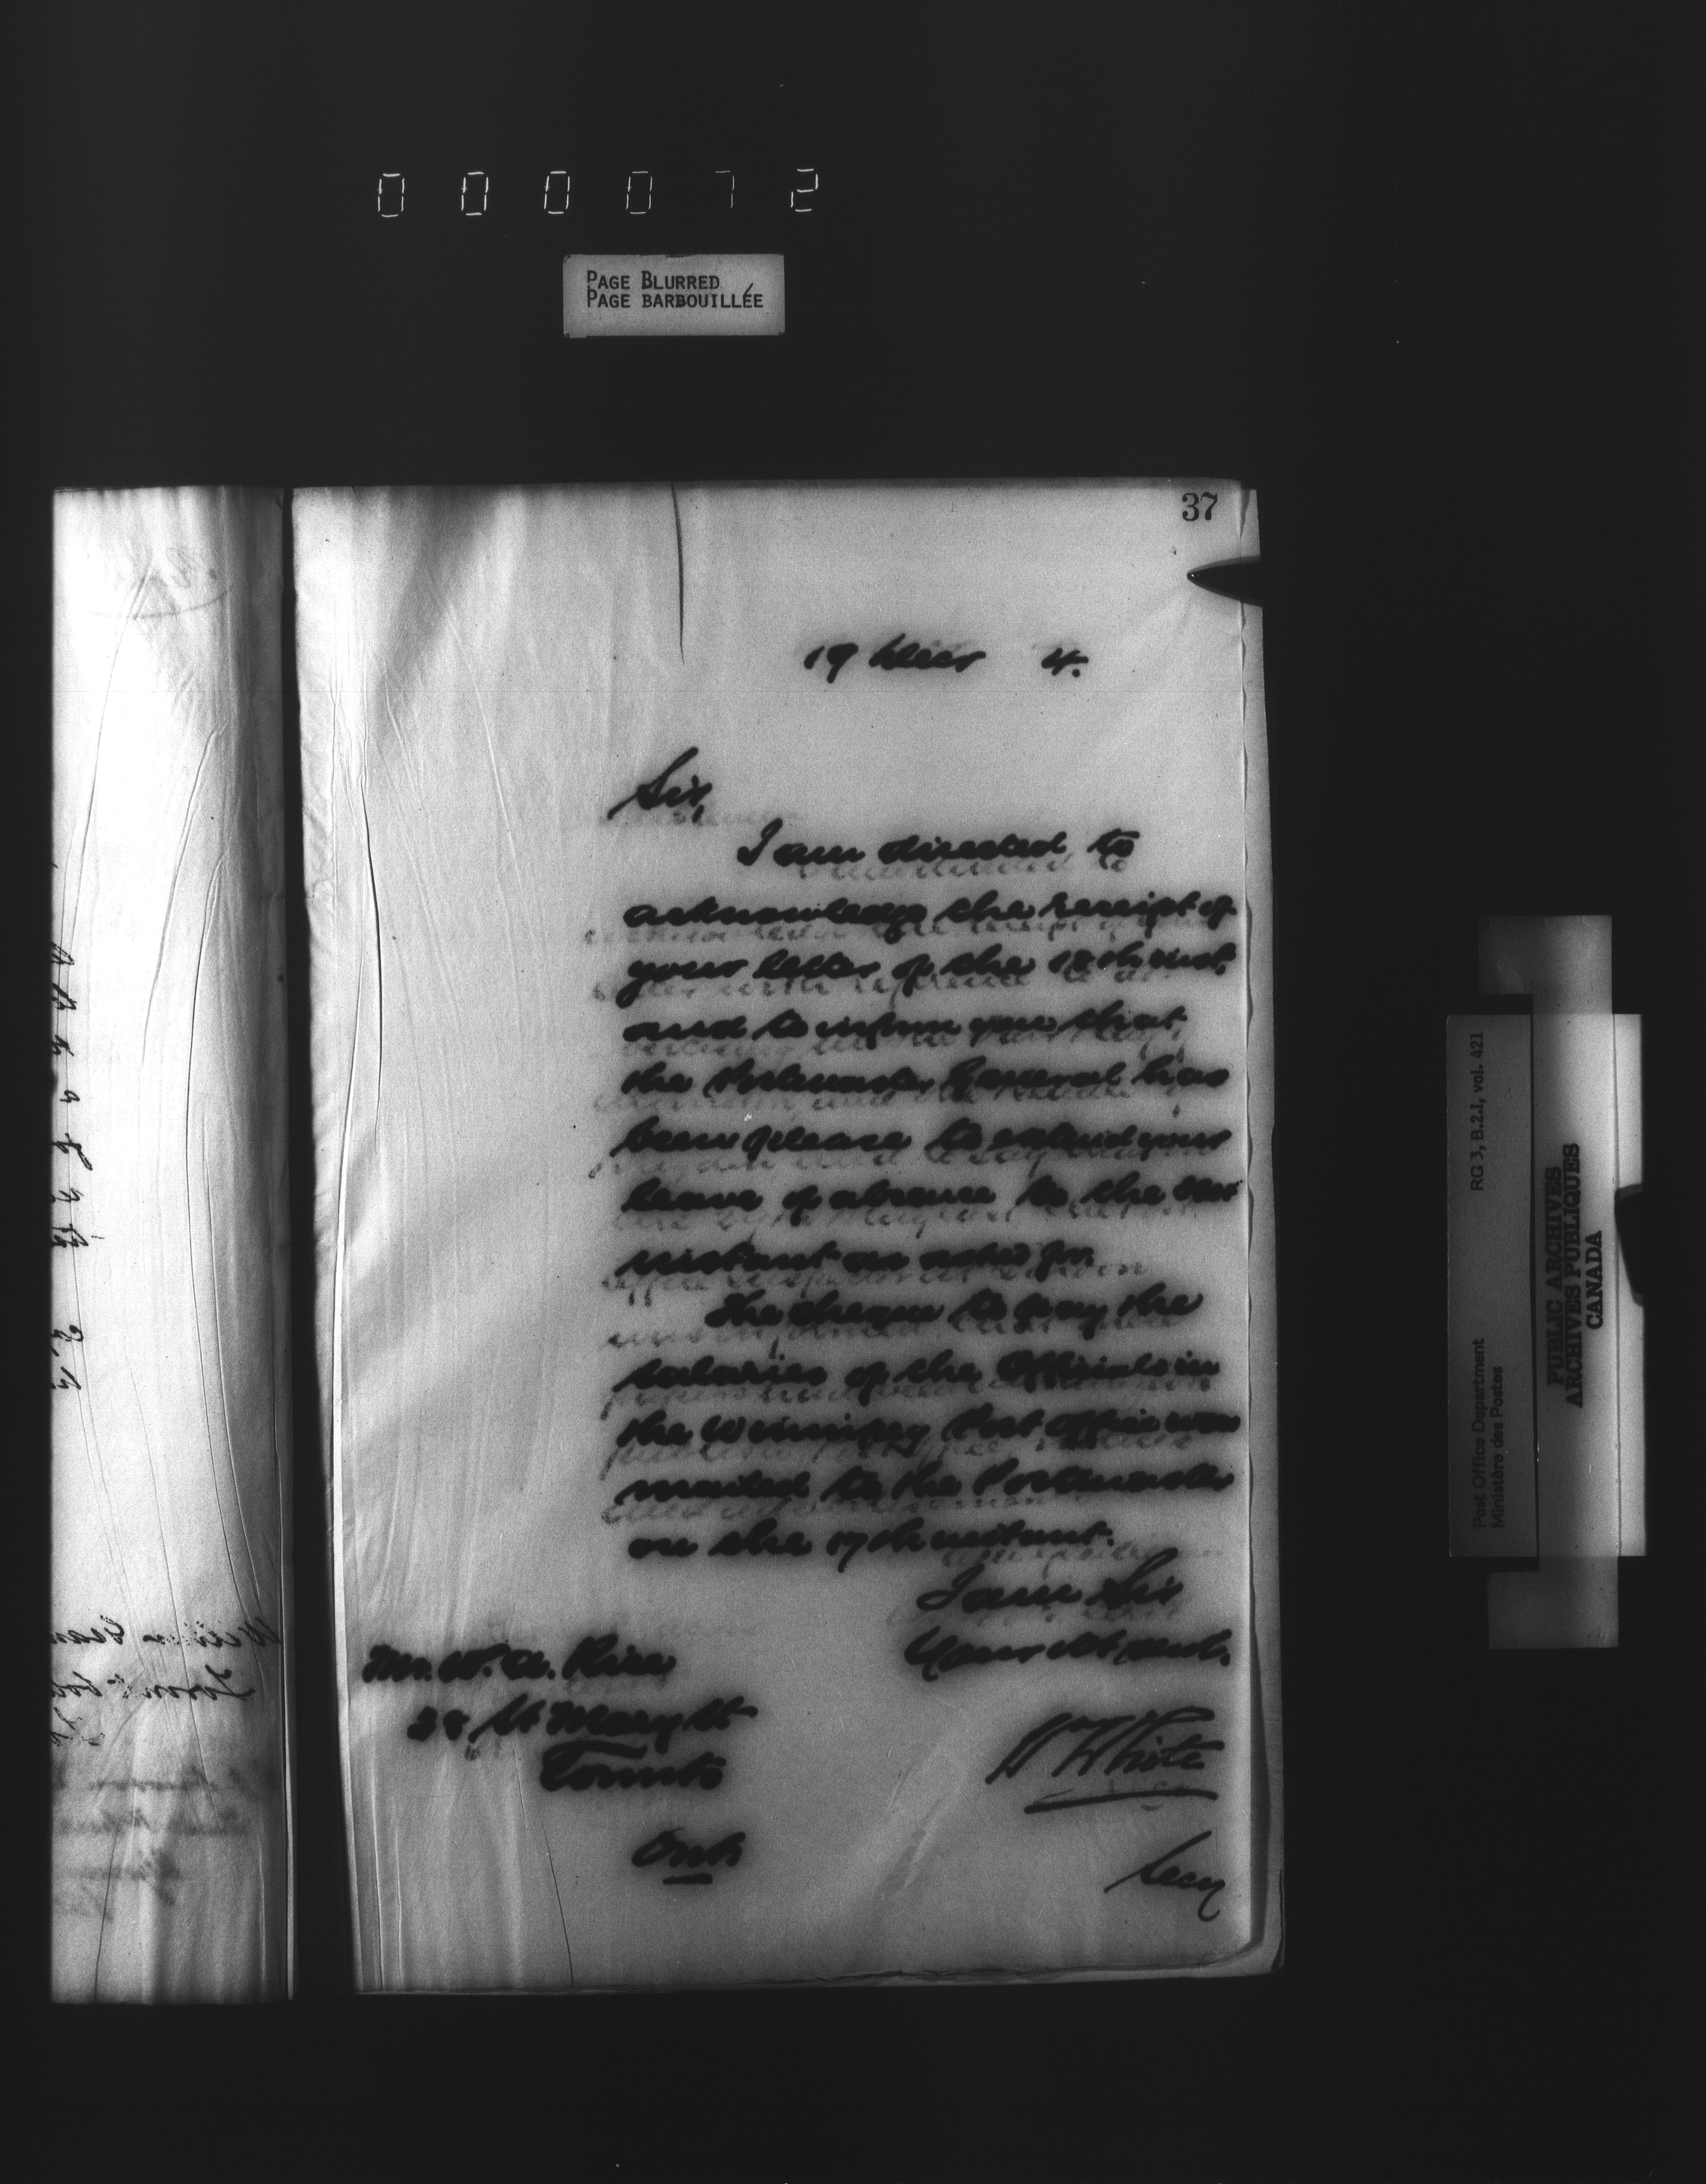 000072
PAGE BLURRED
PAGE BARBOUILLÉE
37
19 Decr 4.
Sir,
I am directed to
acknowledge the receipt of
your letter of the 18th inst,
and to inform you that
the Postmaster General has
been please to extend your
leave of absence to the
instant as asked for.
The cheque to pay the
salaries of the Officials in
the Winnipeg Post Office was
mailed to the Postmaster
on the 17th instant.
I am Sir
Your Ob. servt.
Mr. W. A.
28 St Mary St
Toronto
Ont
W White
Secy
RG 3, B.2.1, vol. 421
Post Office Department
Ministère des Postes
PUBLIC ARCHIVES
ARCHIVES PUBLIQUES
CANADA